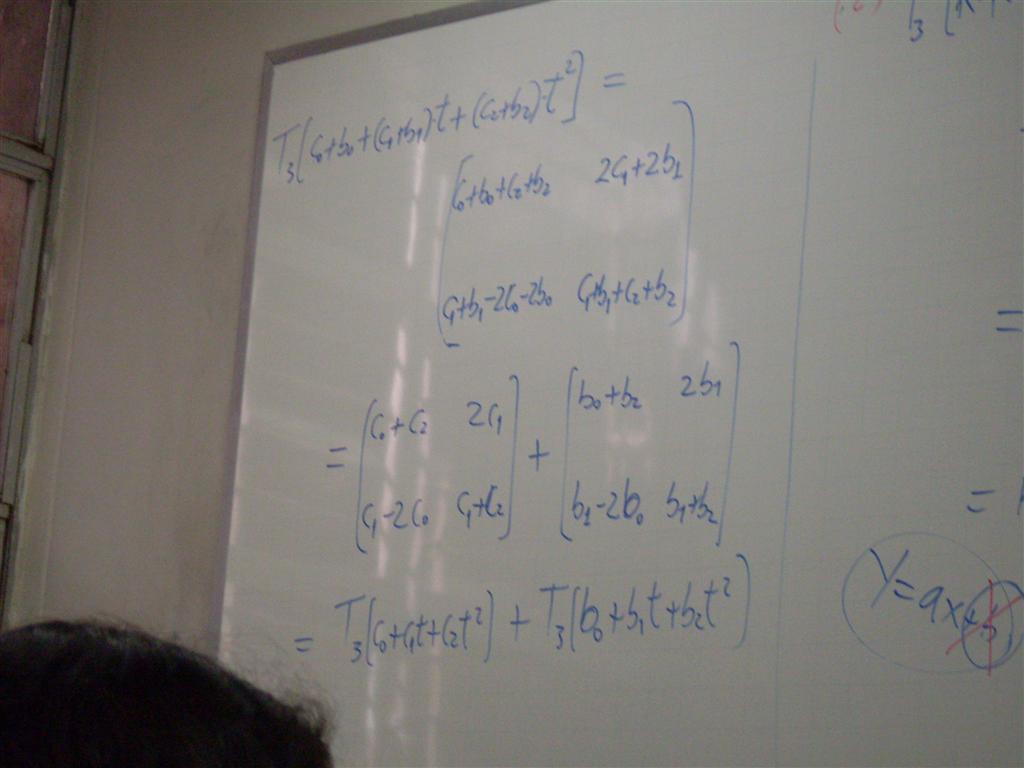 T₃[c₀+b₀+(c₁+b₁)t+(c₂+b₂)t²] =
c₀+b₀+c₂+b₂ 2c₁+2b₁
c₁+b₁-2c₀-2b₀ c₁+b₁+c₂+b₂
= [c₀+c₂ 2c₁] + [b₀+b₂ 2b₁]
[c₁-2c₀ c₁+c₂] [b₁-2b₀ b₁+b₂]
= T₃[c₀+c₁t+c₂t²] + T₃[b₀+b₁t+b₂t²]
=
=
Y=ax+b